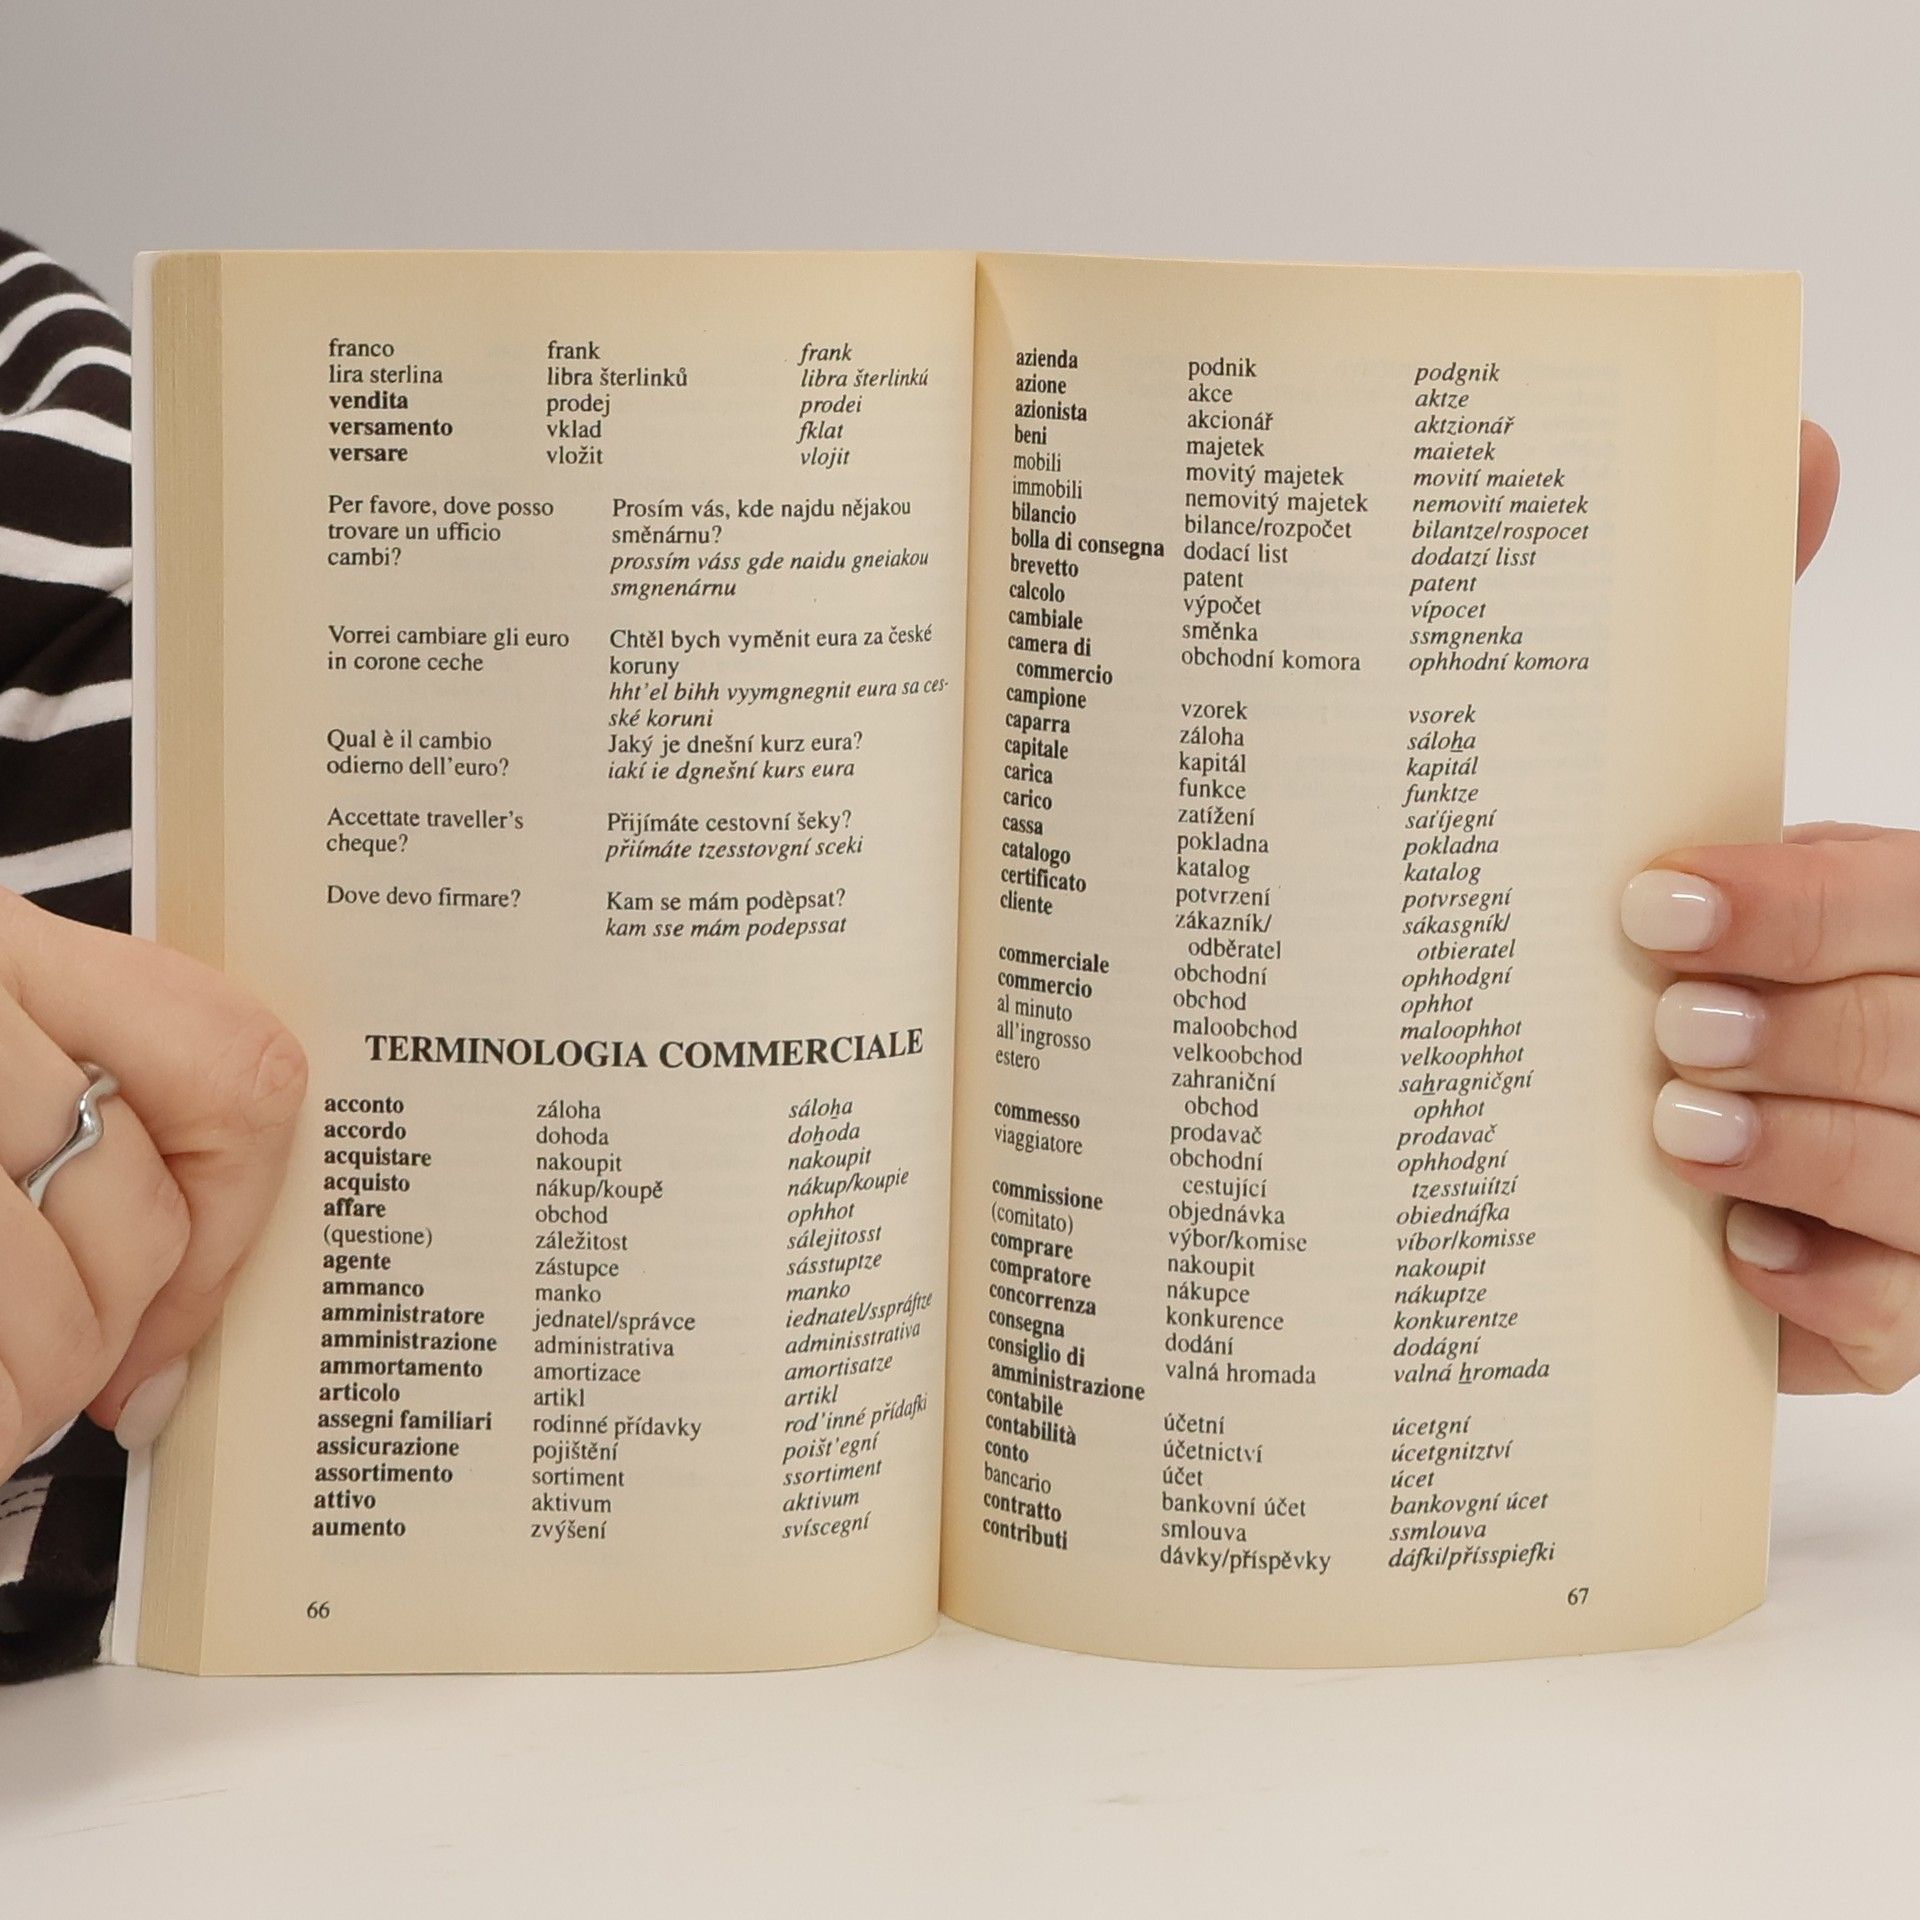 franco frank frank
lira sterlina libra šterlinků libra šterlinkú
vendita prodej prodei
versamento vklad fklat
versare vložit vlojit
Per favore, dove posso Prosím vás, kde najdu nějakou
trovare un ufficio směnárnu?
cambi? prossím váss gde naidu gneiakou
smgnenárnu
Vorrei cambiare gli euro Chtěl bych vyměnit eura za české
in corone ceche koruny
hht'el bihh vyymgnegnit eura sa ces-
ské koruni
Qual è il cambio Jaký je dnešní kurz eura?
odierno dell'euro? iakí ie dgnešní kurs eura
Accettate traveller's Přijímáte cestovní šeky?
cheque? přiímáte tzesstovgní sceki
Dove devo firmare? Kam se mám podèpsat?
kam sse mám podepssat
TERMINOLOGIA COMMERCIALE
acconto záloha sáloha
accordo dohoda dohoda
acquistare nakoupit nakoupit
acquisto nákup/koupě nákup/koupie
affare obchod ophhot
(questione) záležitost sálejitosst
agente zástupce sásstuptze
ammanco manko manko
amministratore jednatel/správce iednatel/sspráftze
amministrazione administrativa adminisstrativa
ammortamento amortizace amortisatze
articolo artikl artikl
assegni familiari rodinné přídavky rod'inné přídafki
assicurazione pojištění poišt'egní
assortimento sortiment ssortiment
attivo aktivum aktivum
aumento zvýšení svíscegní
66
azienda podnik podgnik
azione akce aktze
azionista akcionář aktzionář
beni majetek maietek
mobili movitý majetek movití maietek
immobili nemovitý majetek nemovití maietek
bilancio bilance/rozpočet bilantze/rospocet
bolla di consegna dodací list dodatzí lisst
brevetto patent patent
calcolo výpočet vípocet
cambiale směnka ssmgnenka
camera di obchodní komora ophhodní komora
commercio
campione vzorek vsorek
caparra záloha sáloha
capitale kapitál kapitál
carica funkce funktze
carico zatížení saťíjegní
cassa pokladna pokladna
catalogo katalog katalog
certificato potvrzení potvrsegní
cliente zákazník/ sákasgník/
odběratel otbieratel
commerciale obchodní ophhodgní
commercio obchod ophhot
al minuto maloobchod maloophhot
all'ingrosso velkoobchod velkoophhot
estero zahraniční sahragničgní
obchod ophhot
commesso prodavač prodavač
viaggiatore obchodní ophhodgní
cestující tzesstuiítzí
commissione objednávka obiednáfka
(comitato) výbor/komise víbor/komisse
comprare nakoupit nakoupit
compratore nákupce nákuptze
concorrenza konkurence konkurentze
consegna dodání dodágní
consiglio di valná hromada valná hromada
amministrazione
contabile účetní úcetgní
contabilità účetnictví úcetgnitztví
conto účet úcet
bancario bankovní účet bankovgní úcet
contratto smlouva ssmlouva
contributi dávky/příspěvky dáfki/přísspiefki
67